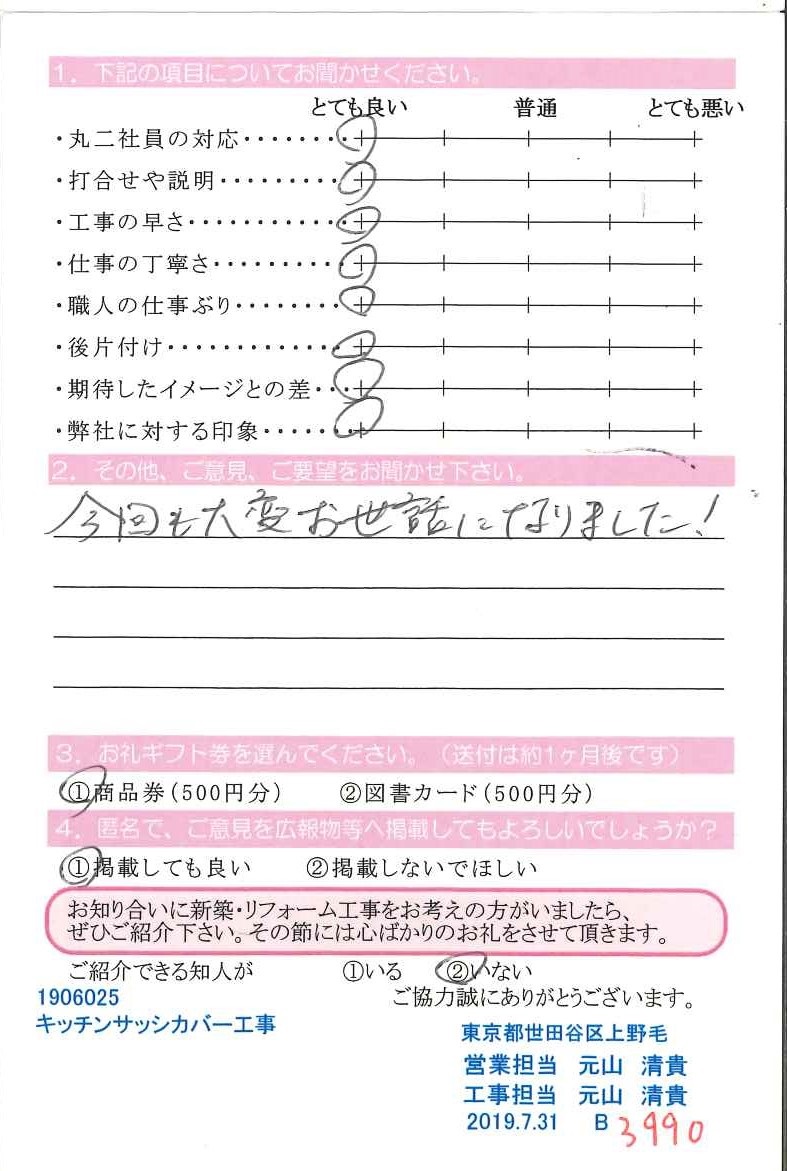 1．下記の項目についてお聞かせください。
とても良い 普通 とても悪い
・丸二社員の対応・・・・・・・・
・打合せや説明・・・・・・・・・
・工事の早さ・・・・・・・・・・・
・仕事の丁寧さ・・・・・・・・・
・職人の仕事ぶり・・・・・・・・
・後片付け・・・・・・・・・・・・
・期待したイメージとの差・・・
・弊社に対する印象・・・・・・
2．その他、ご意見、ご要望をお聞かせ下さい。
今回も大変お世話になりました！
3．お礼ギフト券を選んでください。（送付は約1ヶ月後です）
①商品券（500円分） ②図書カード（500円分）
4．匿名で、ご意見を広報物等へ掲載してもよろしいでしょうか？
①掲載しても良い ②掲載しないでほしい
お知り合いに新築・リフォーム工事をお考えの方がいましたら、
ぜひご紹介下さい。その節には心ばかりのお礼をさせて頂きます。
ご紹介できる知人が ①いる ②いない
1906025 ご協力誠にありがとうございます。
キッチンサッシカバー工事
東京都世田谷区上野毛
営業担当 元山 清貴
工事担当 元山 清貴
2019.7.31 B 3990